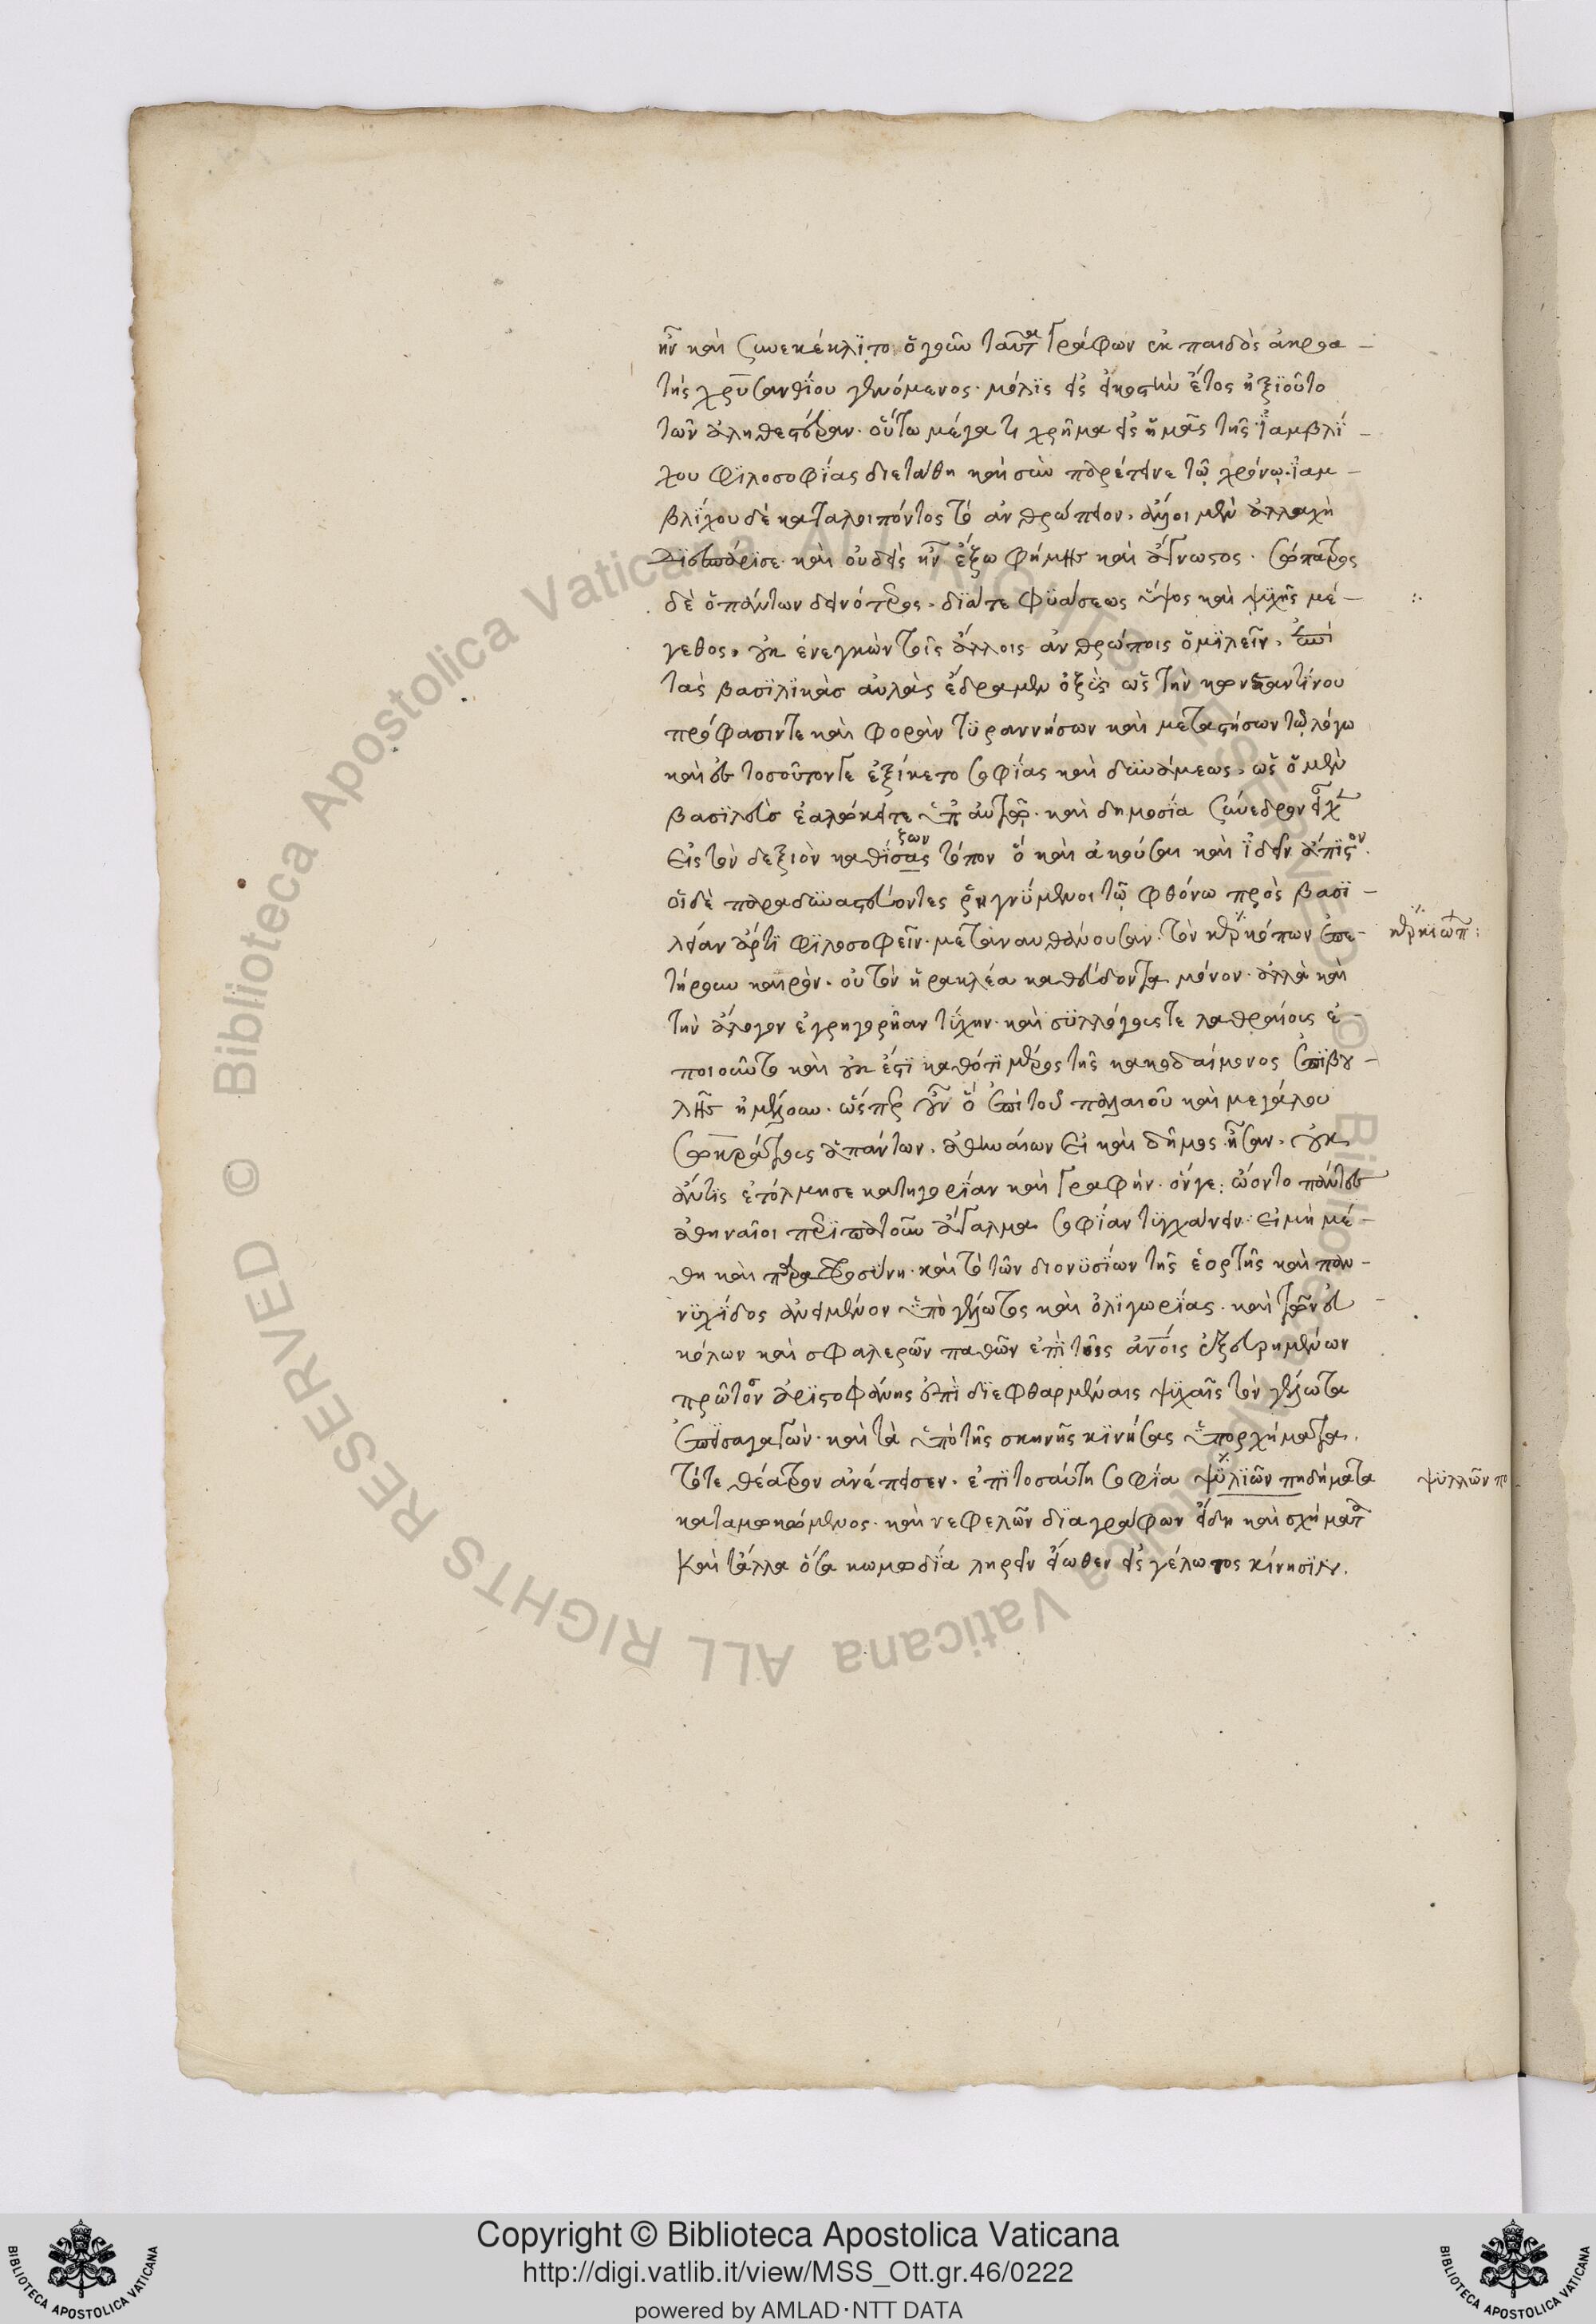 ἦν καὶ συνεκέκλιτο. ὁ γοῦν ταῦτα γράφων ἐκ παιδὸς ἀκροα-
τὴς χρυσανθίου γενόμενος. μόλις εἰς εἰκοστὸν ἔτος ἠξιοῦτο
τῶν ἀληθεστέρων. οὕτω μέγα τι χρῆμα εἰς ἡμᾶς τῆς ἰαμβλί-
χου φιλοσοφίας διετάθη καὶ συμπαρέτεινε τῷ χρόνῳ. ἰαμ-
βλίχου δὲ καταλιπόντος τὸ ἀνθρώπειον. ἄλλοι μὲν ἀλλαχῆ
διεσπάρησαν. καὶ οὐδεὶς ἦν ἔξω φήμης καὶ ἄγνωστος. σώπατρος
δὲ ὁ πάντων δεινότερος. διά τε φύσεως ὕψος καὶ ψυχῆς μέ-
γεθος. οὐκ ἐνεγκὼν τοῖς ἄλλοις ἀνθρώποις ὁμιλεῖν. ἐπὶ
τὰς βασιλικὰς αὐλὰς ἔδραμεν ὀξὺς ὡς τὴν κωνσταντίνου
πρόφασίν τε καὶ φορὰν τυραννήσων καὶ μεταστήσων τῷ λόγω
καὶ ἐς τοσοῦτόν γε ἐξίκετο σοφίας καὶ δυνάμεως. ὡς ὁ μὲν
βασιλεὺς ἑαλώκει τε ὑπ' αὐτῷ. καὶ δημοσία σύνεδρον εἶχεν
εἰς τὸν δεξιὸν καθίσας τόπον ὃ καὶ ἀκοῦσαι καὶ ἰδεῖν ἄπιστον.
ξων
οἱ δὲ παραδυναστεύοντες ῥηγνύμενοι τῷ φθόνω πρὸς βασι-
λείαν ἄρτι φιλοσοφεῖν μεταμανθάνουσαν. τὸν κερκόπων ἐπε-
κερκώπ:
τήρουν καιρὸν. οὐ τὸν ἡρακλέα καθεύδοντα μόνον. ἀλλὰ καὶ
τὴν ἄλογον ἐγρηγορυῖαν τύχην. καὶ συλλόγους τε λαθραίους ἐ-
ποιοῦντο καὶ οὐκ ἔστι καθότι μέρος τῆς κακοδαίμονος ἐπιβου-
λῆς ἠμέλουν. ὥσπερ οὖν ὁ ἐπὶ τοῦ παλαιοῦ καὶ μεγάλου
σωκράτους ἁπάντων. ἀθηναίων εἰ καὶ δῆμος ἦσαν. οὐκ
ἄν τις ἐτόλμησε κατηγορίαν καὶ γραφήν. ὅν γε ᾤοντο πάντες
ἀθηναῖοι περιπατοῦν ἄγαλμα σοφίαν τυγχάνειν. εἰ μὴ μέ-
θη καὶ παραφροσύνη. καὶ τὸ τῶν διονυσίων τῆς ἑορτῆς καὶ παν-
νυχίδος ἀνειμένον ὑπὸ γέλωτος καὶ ὀλιγωρίας. καὶ τῶν εὐ
κόλων καὶ σφαλερῶν παθῶν ἐπὶ τοῖς ἀνοις ἐξευρημένων
πρῶτον ἀριστοφάνης ἐπὶ διεφθαρμέναις ψυχαῖς τὸν γέλωτα
ἐπεισαγαγών. καὶ τὰ ὑπὸ τῆς σκηνῆς κινήσας ὑπορχήματα.
τότε θέατρον ἀνέπεισεν. ἐπὶ τοσαύτη σοφία ψυλιῶν πηδήματα
ψυλλῶν πη
καταμωκώμενος. καὶ νεφελῶν διαγράφων εἴδη καὶ σχήματα
καὶ τἄλλα ὅσα κωμωδία ληρεῖν εἴωθεν εἰς γέλωτος κίνησιν.
Copyright © Biblioteca Apostolica Vaticana
http://digi.vatlib.it/view/MSS_Ott.gr.46/0222
powered by AMLAD·NTT DATA
BIBLIOTECA APOSTOLICA VATICANA
BIBLIOTECA APOSTOLICA VATICANA
© Biblioteca Apostolica Vaticana ALL RIGHTS RESERVED
© Biblioteca Apostolica Vaticana ALL RIGHTS RESERVED